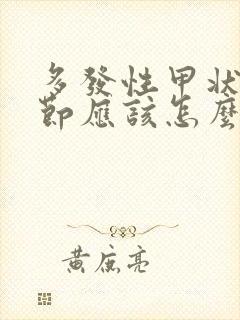 多發性甲狀
節應該怎麼
黃庭亮